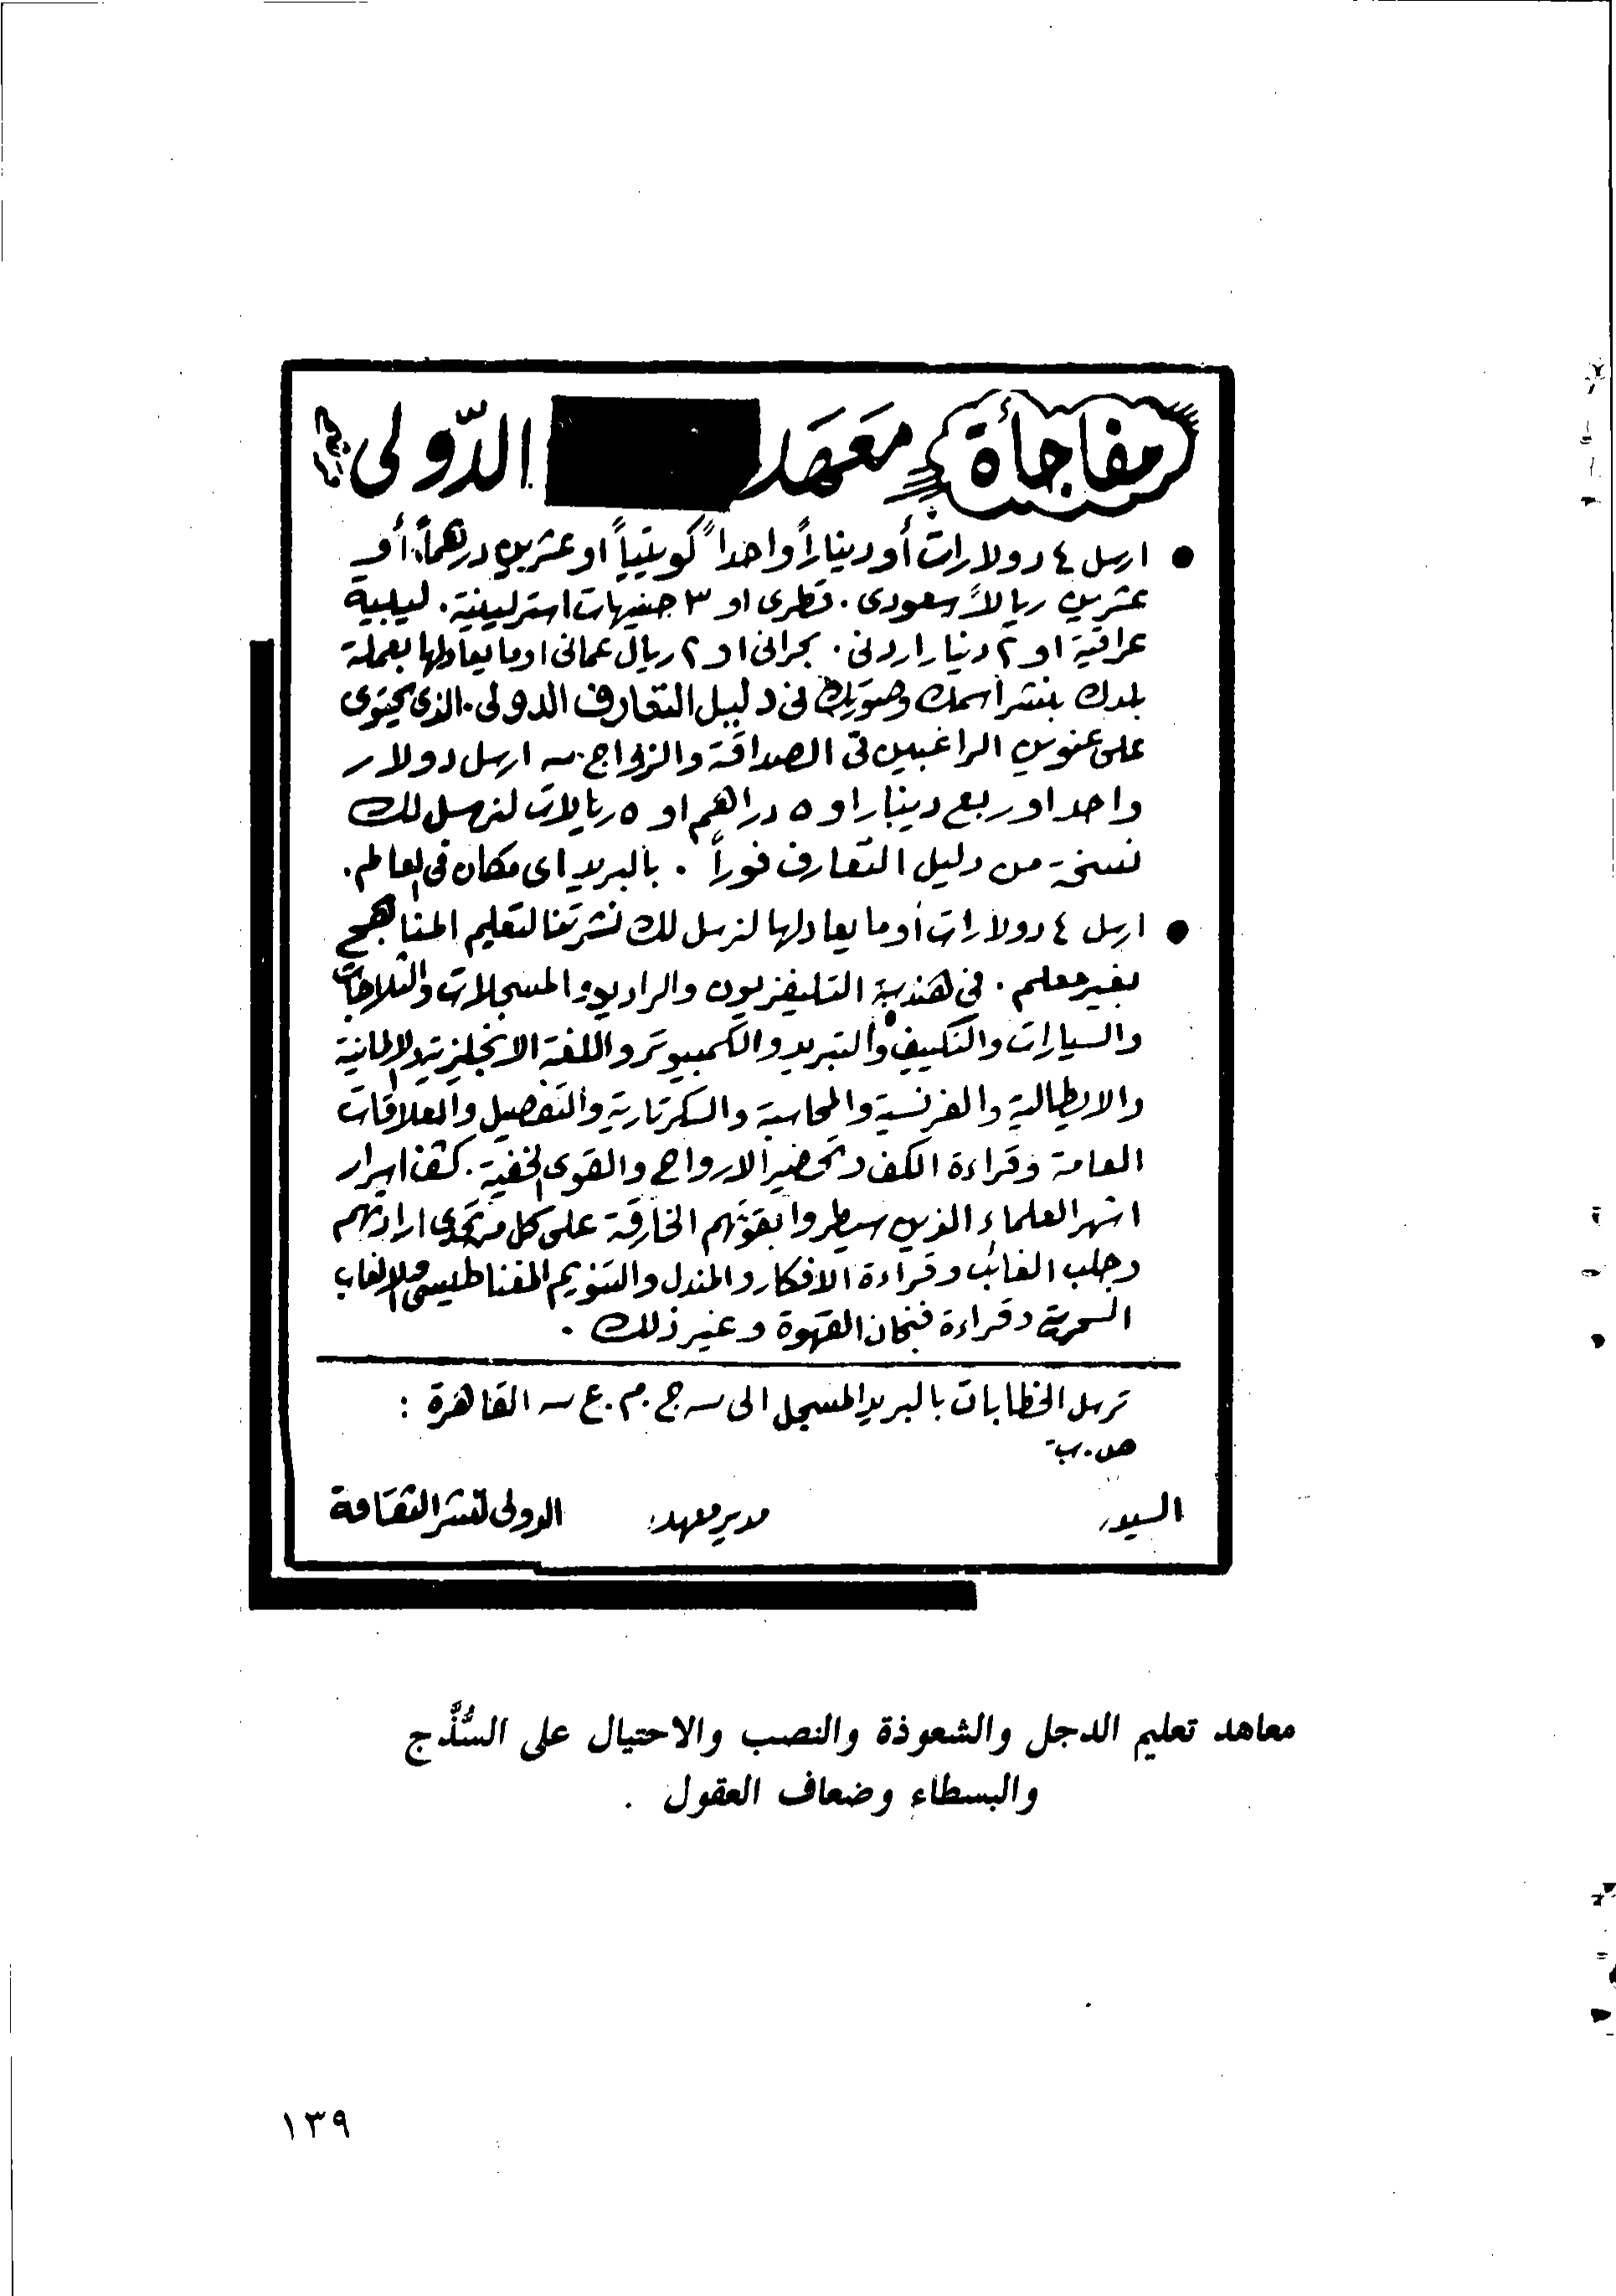 مفاجأة معهد الدّولى
● ارسل ٤ دولارات أو ديناراً واحداً كويتياً او عشرين درهماً. أو
عشرين ريالاً سعودى . قطرى او ٣ جنيهات استرلينية . ليبية
عراقية او ٢ دينار اردنى . بحرانى او ٢ ريال عمانى او ما يعادلها بعملة
بلدك بنشر أسمك وصورتك فى دليل التعارف الدولى . الذى يحتوى
على عنوين الراغبين فى الصداقة والزواج . ارسل دولار
واحد او ربع دينار او ٥ دراهم او ٥ ريالات لنرسل لك
نسخة من دليل التعارف فوراً . بالبريد اى مكان فى العالم .
● ارسل ٤ دولارات أو ما يعادلها لنرسل لك نشرتنا لتعليم المناهج
بغير معلم . فى هندسة التليفزيون والراديو والمسجلات والثلاجات
والسيارات والتكييف والتبريد والكمبيوتر واللغة الانجليزية والالمانية
والايطالية والفرنسية والمحاسبة والسكرتارية والتفصيل والعلاقات
العامة وقراءة الكف وتحضير الارواح والقوى الخفية . كشف اسرار
اشهر العلماء الذين سيطروا بقوتهم الخارقة على كل من تحدى ارادتهم
وجلب الغائب وقراءة الافكار والمندل والتنويم المغناطيسى والالعاب
السحرية وقراءة فنجان القهوة وغير ذلك .
ترسل الخطابات بالبريد المسجل الى ـ ج . م . ع ـ القاهرة :
ص . ب
السيد / مدير معهد الدولى لنشر الثقافة
معاهد تعليم الدجل والشعوذة والنصب والاحتيال على السُّذَّج
والبسطاء وضعاف العقول .
١٣٩